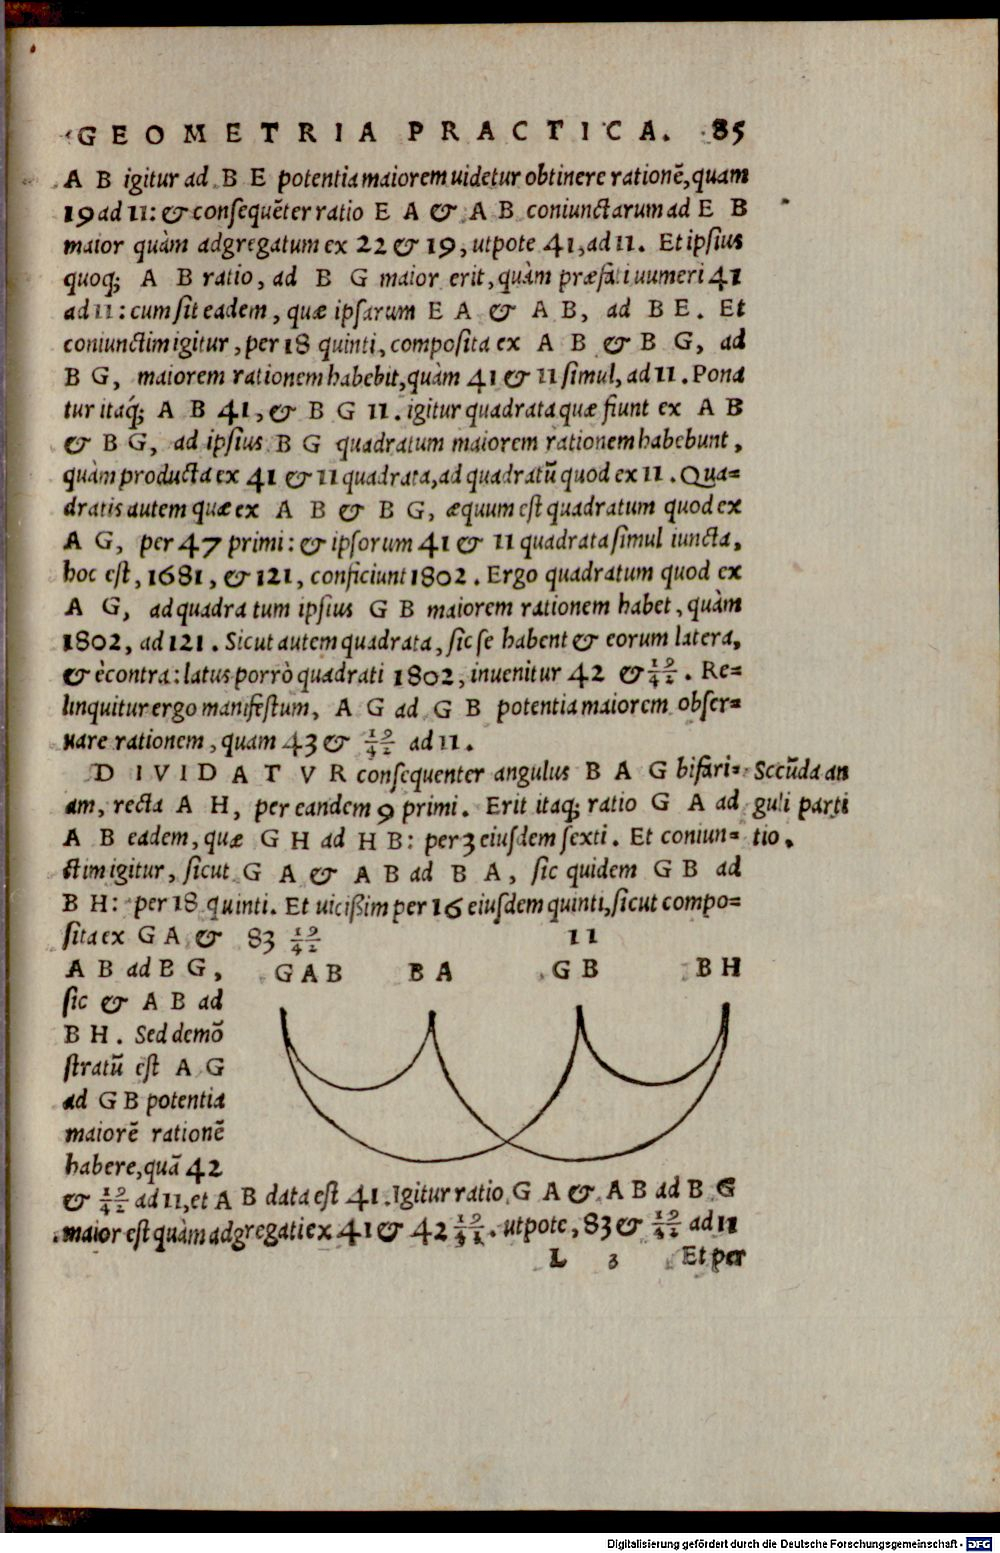 GEOMETRIA PRACTICA. 85
A B igitur ad B E potentia maiorem uidetur obtinere rationē, quam
19 ad 11: & consequēter ratio E A & A B coniunctarum ad E B
maior quàm adgregatum ex 22 & 19, utpote 41, ad 11. Et ipsius
quoq; A B ratio, ad B G maior erit, quàm præfati uumeri 41
ad 11: cum sit eadem, quæ ipsarum E A & A B, ad B E. Et
coniunctim igitur, per 18 quinti, composita ex A B & B G, ad
B G, maiorem rationem habebit, quàm 41 & 11 simul, ad 11. Pona
tur itaq; A B 41, & B G 11. igitur quadrata quæ fiunt ex A B
& B G, ad ipsius B G quadratum maiorem rationem habebunt,
quàm producta ex 41 & 11 quadrata, ad quadratū quod ex 11. Qua=
dratis autem quæ ex A B & B G, æquum est quadratum quod ex
A G, per 47 primi: & ipsorum 41 & 11 quadrata simul iuncta,
hoc est, 1681, & 121, conficiunt 1802. Ergo quadratum quod ex
A G, ad quadra tum ipsius G B maiorem rationem habet, quàm
1802, ad 121. Sicut autem quadrata, sic se habent & eorum latera,
& ècontra: latus porrò quadrati 1802, inuenitur 42 & 19/42. Re=
linquitur ergo manifestum, A G ad G B potentia maiorem obser=
uare rationem, quam 43 & 19/42 ad 11.
DIVIDATVR consequenter angulus B A G bifari= Secūda an
am, recta A H, per eandem 9 primi. Erit itaq; ratio G A ad guli parti
A B eadem, quæ G H ad H B: per 3 eiusdem sexti. Et coniun= tio.
ctim igitur, sicut G A & A B ad B A, sic quidem G B ad
B H: per 18 quinti. Et uicißim per 16 eiusdem quinti, sicut compo=
sita ex G A &
A B ad B G,
sic & A B ad
B H. Sed demō
stratū est A G
ad G B potentia
maiorē rationē
habere, quā 42
83 19/42 11
G A B B A G B B H
& 19/42 ad 11, et A B data est 41. Igitur ratio G A & A B ad B G
maior est quàm adgregati ex 41 & 42 19/42. utpote, 83 & 19/42 ad 11
L 3 Et per
Digitalisierung gefördert durch die Deutsche Forschungsgemeinschaft - DFG